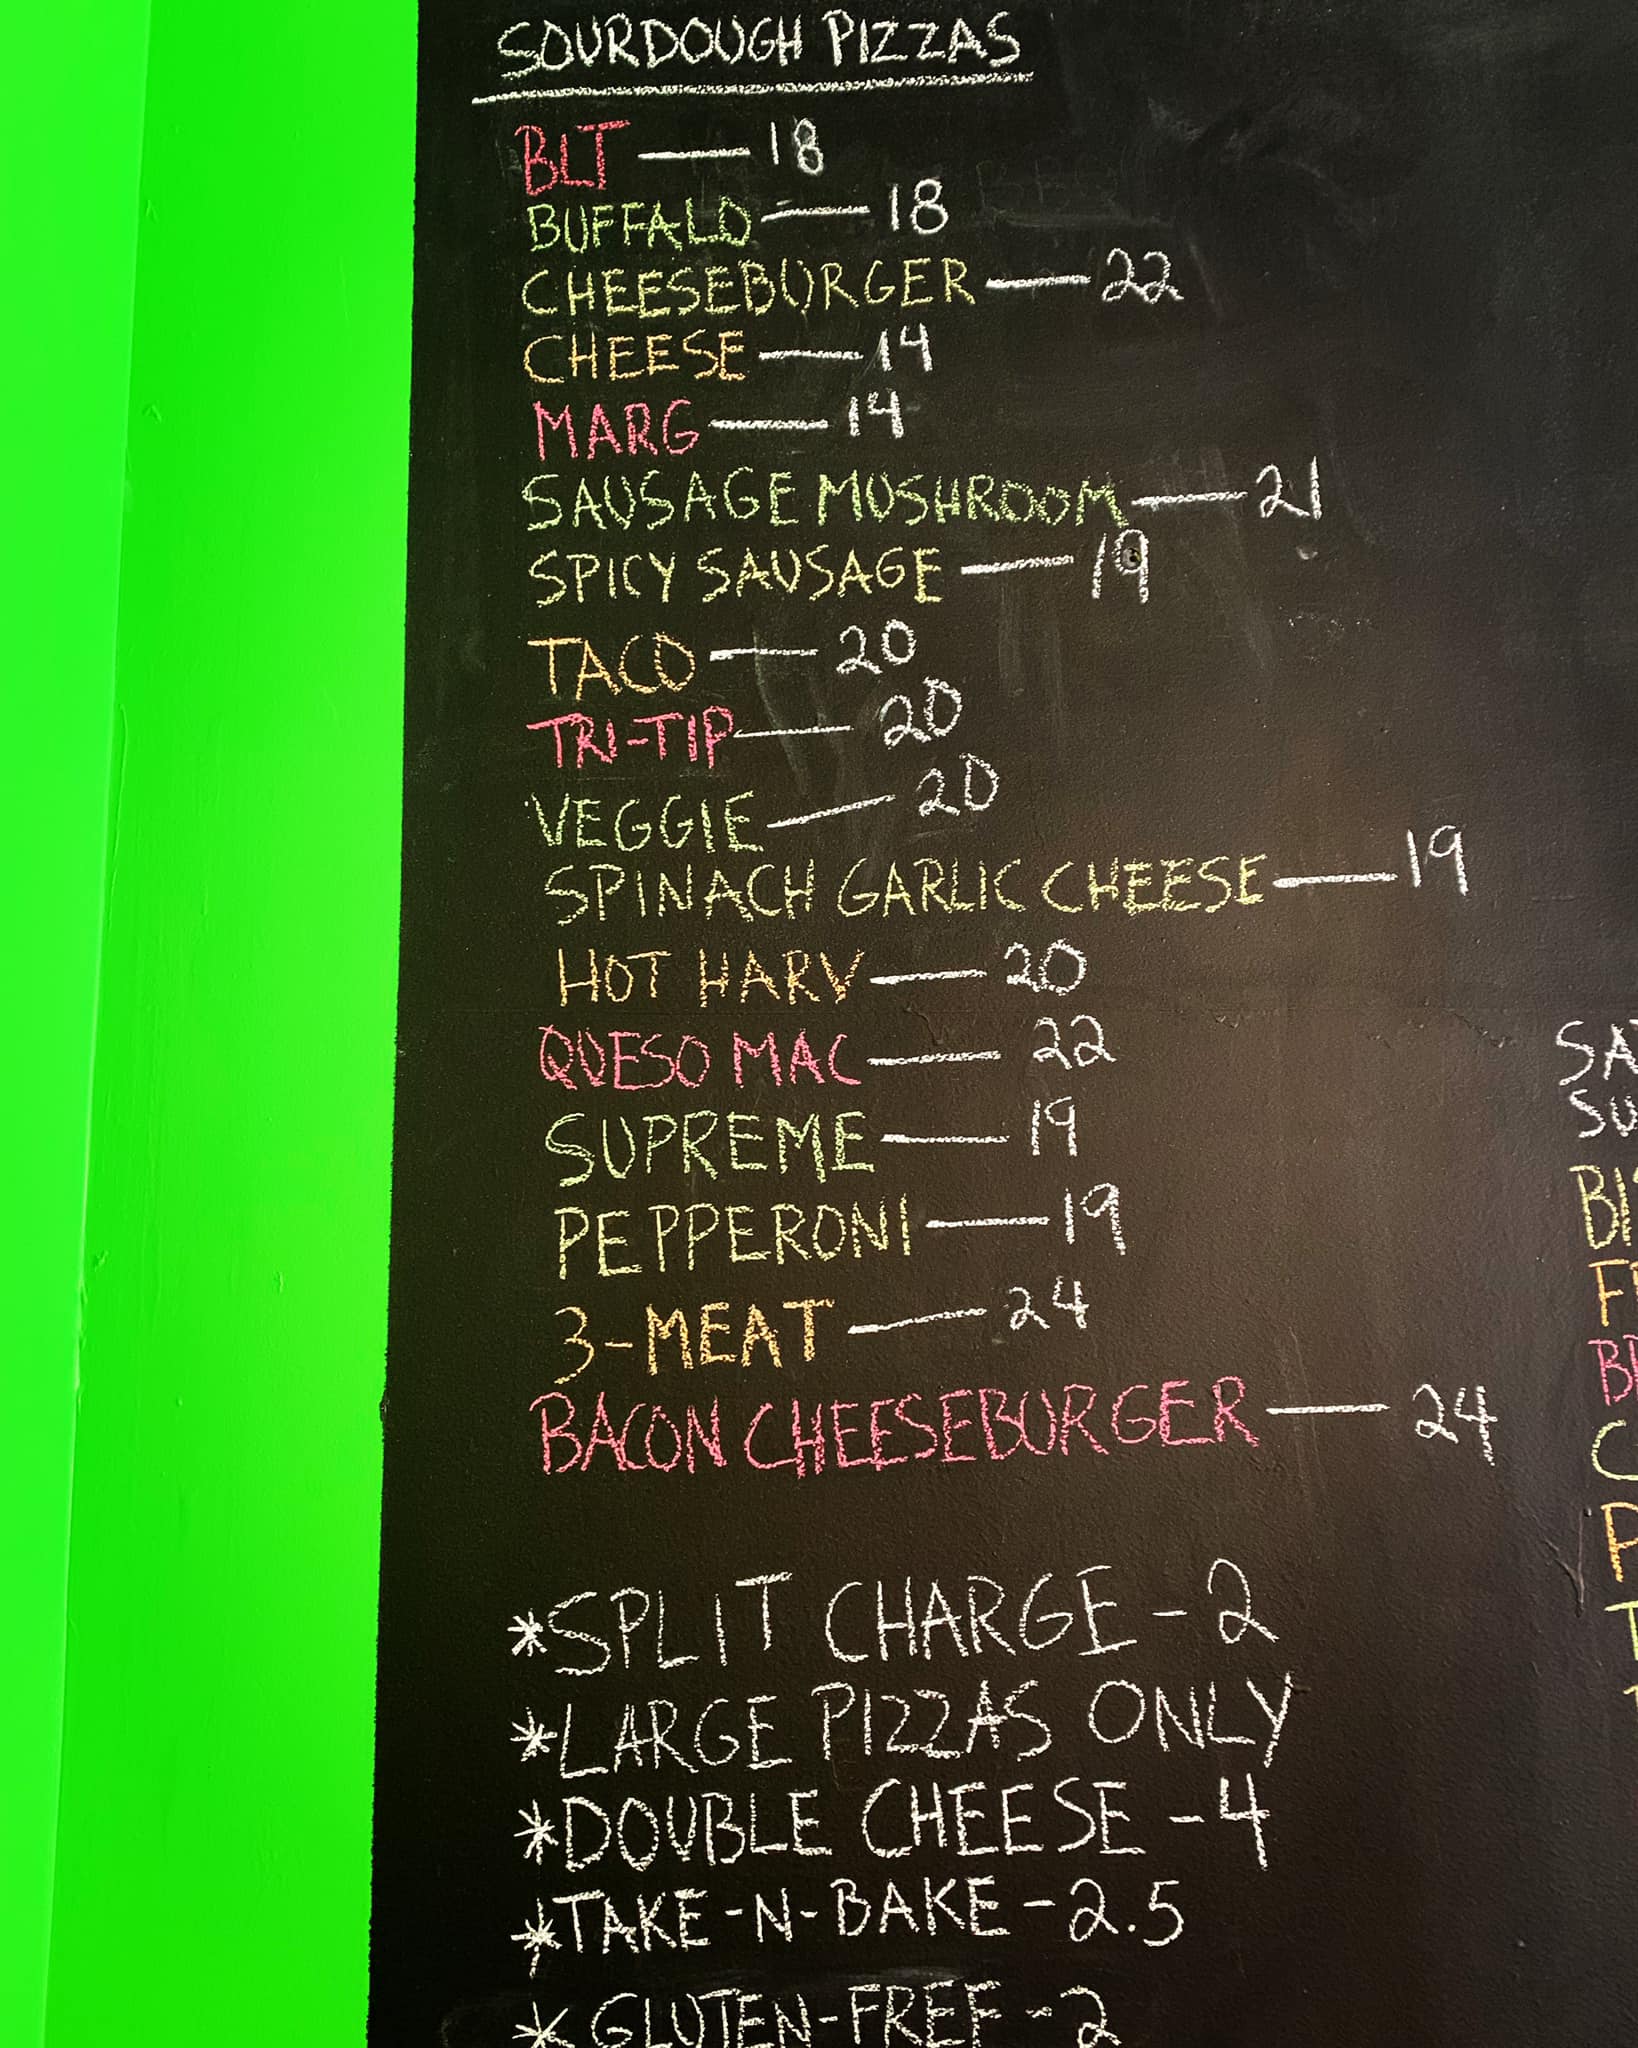 SOURDOUGH PIZZAS
BLT — 18
BUFFALO — 18
CHEESEBURGER — 22
CHEESE — 14
MARG — 14
SAUSAGE MUSHROOM — 21
SPICY SAUSAGE — 19
TACO — 20
TRI-TIP — 20
VEGGIE — 20
SPINACH GARLIC CHEESE — 19
HOT HARV — 20
QUESO MAC — 22
SUPREME — 19
PEPPERONI — 19
3-MEAT — 24
BACON CHEESEBURGER — 24
*SPLIT CHARGE - 2
*LARGE PIZZAS ONLY
*DOUBLE CHEESE - 4
*TAKE-N-BAKE - 2.5
*GLUTEN-FREE - 2